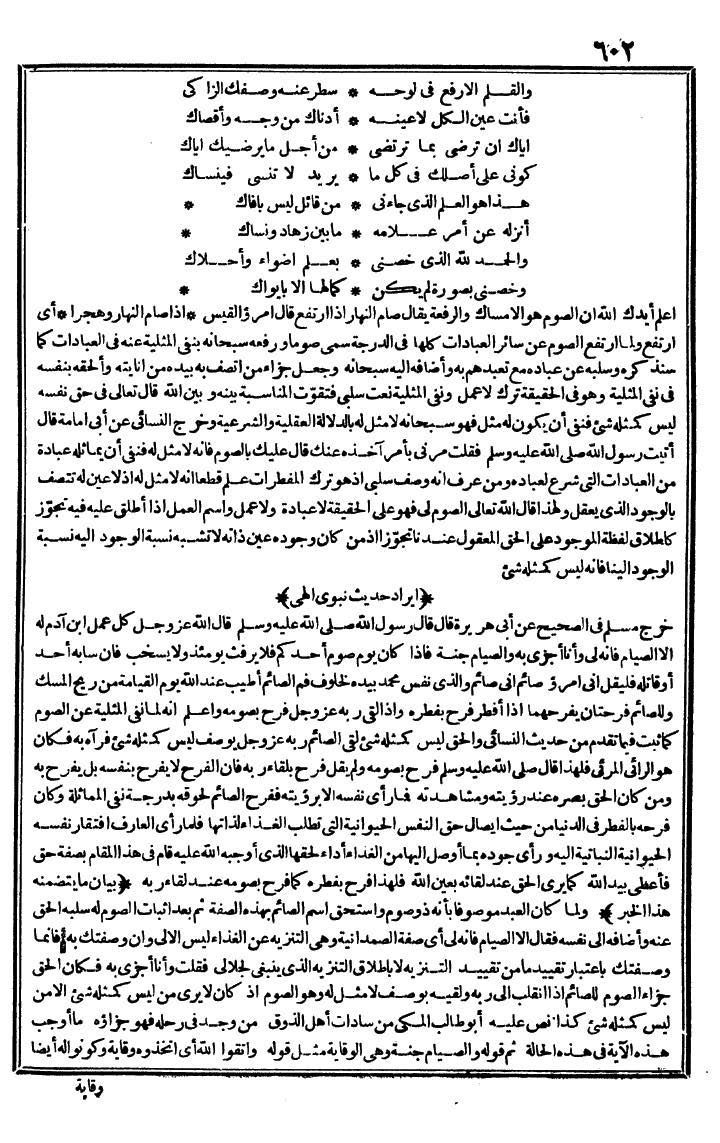 ٦٠٢
والقلم الارفع فى لوحه * سطر عنه وصفك الزاكى
فأنت عين الكل لاعينه * أدناك من وجه وأقصاك
اياك ان ترضى بما ترتضى * من أجل مايرضيك اياك
كونى على أصلك فى كل ما * يريد لا تنسى فينساك
هذاهو العلم الذى جاءنى * من قائل ليس بافاك *
أنزله عن أمر علامه * مابين زهاد ونساك *
والحمد لله الذى خصنى * بعلم اضواء وأحلاك
وخصنى بصورة لم يكن * كمالها الا بايواك *
اعلم أيدك الله ان الصوم هو الامساك والرفعة يقال صام النهار اذا ارتفع قال امرؤ القيس * اذا صام النهار وهجرا * أى
ارتفع ولما ارتفع الصوم عن سائر العبادات كلها فى الدرجة سمى صوما ورفعه سبحانه بنفى المثلية عنه فى العبادات كما
سنذكره وسلبه عن عباده مع تعبدهم به وأضافه اليه سبحانه وجعل جزاء من اتصف به بيده من انايته وألحقه بنفسه
فى نفى المثلية وهو فى الحقيقة ترك لاعمل ونفى المثلية نعت سلبى فتقوّت المناسبة بينه وبين الله قال تعالى فى حق نفسه
ليس كمثله شئ فنفى أن يكون له مثل فهو سبحانه لامثل له بالدلالة العقلية والشرعية وخرج النسائى عن أبى امامة قال
أتيت رسول الله صلى الله عليه وسلم فقلت مرنى بأمر آخذه عنك قال عليك بالصوم فانه لامثل له فنفى أن يماثله عبادة
من العبادات التى شرع لعباده ومن عرف انه وصف سلبى اذهو ترك المفطرات علم قطعا انه لامثل له اذ لاعين له تتصف
بالوجود الذى يعقل ولهذا قال الله تعالى الصوم لى فهو على الحقيقة لاعبادة ولاعمل واسم العمل اذا أطلق عليه فيه تجوّز
كاطلاق لفظة الموجود على الحق المعقول عندنا تجوّزا اذ من كان وجوده عين ذاته لا تشبه نسبة الوجود اليه نسبة
الوجود الينا فانه ليس كمثله شئ
﴿ايراد حديث نبوى الهى﴾
خرج مسلم فى الصحيح عن أبى هريرة قال قال رسول الله صلى الله عليه وسلم قال الله عز وجل كل عمل ابن آدم له
الا الصيام فانه لى وأنا أجزى به والصيام جنة فاذا كان يوم صوم أحدكم فلا يرفث يومئذ ولا يسخب فان سابه أحد
أو قاتله فليقل انى امرؤ صائم انى صائم والذى نفس محمد بيده لخلوف فم الصائم أطيب عند الله يوم القيامة من ريح المسك
وللصائم فرحتان يفرحهما اذا أفطر فرح بفطره واذا لقى ربه عز وجل فرح بصومه واعلم انه لما نفى المثلية عن الصوم
كما ثبت فيما تقدم من حديث النسائى والحق ليس كمثله شئ لقى الصائم ربه عز وجل بوصف ليس كمثله شئ فرآه به فكان
هو الرائى المرئى فلهذا قال صلى الله عليه وسلم فرح بصومه ولم يقل فرح بلقاء ربه فان الفرح لا يفرح بنفسه بل يفرح به
ومن كان الحق بصره عند رؤيته ومشاهدته فما رأى نفسه الا برؤيته ففرح الصائم لحوقه بدرجة نفى المماثلة وكان
فرحه بالفطر فى الدنيا من حيث ايصال حق النفس الحيوانية التى تطلب الغذاء لذاتها فلما رأى العارف افتقار نفسه
الحيوانية النباتية اليه ورأى جوده بما أوصل اليها من الغذاء أداء لحقها الذى أوجبه الله عليه قام فى هذا المقام بصفة حق
فأعطى بيد الله كما يرى الحق عند لقائه بعين الله فلهذا فرح بفطره كما فرح بصومه عند لقاء ربه ﴿بيان ما يتضمنه
هذا الخبر﴾ ولما كان العبد موصوفا بأنه ذو صوم واستحق اسم الصائم بهذه الصفة ثم بعد اثبات الصوم له سلبه الحق
عنه وأضافه الى نفسه فقال الا الصيام فانه لى أى صفة الصمدانية وهى التنزيه عن الغذاء ليس الا لى وان وصفتك به فانما
وصفتك باعتبار تقييد ما من تقييد التنزيه لا باطلاق التنزيه الذى ينبغى لجلالى فقلت وأنا أجزى به فكان الحق
جزاء الصوم للصائم اذا انقلب الى ربه ولقيه بوصف لامثل له وهو الصوم اذ كان لا يرى من ليس كمثله شئ الا من
ليس كمثله شئ كذا نص عليه أبو طالب المكى من سادات أهل الذوق من وجد فى رحله فهو جزاؤه ما أوجب
هذه الآية فى هذه الحالة ثم قوله والصيام جنة وهى الوقاية مثل قوله واتقوا الله أى اتخذوه وقاية وكونوا له أيضا
وقاية